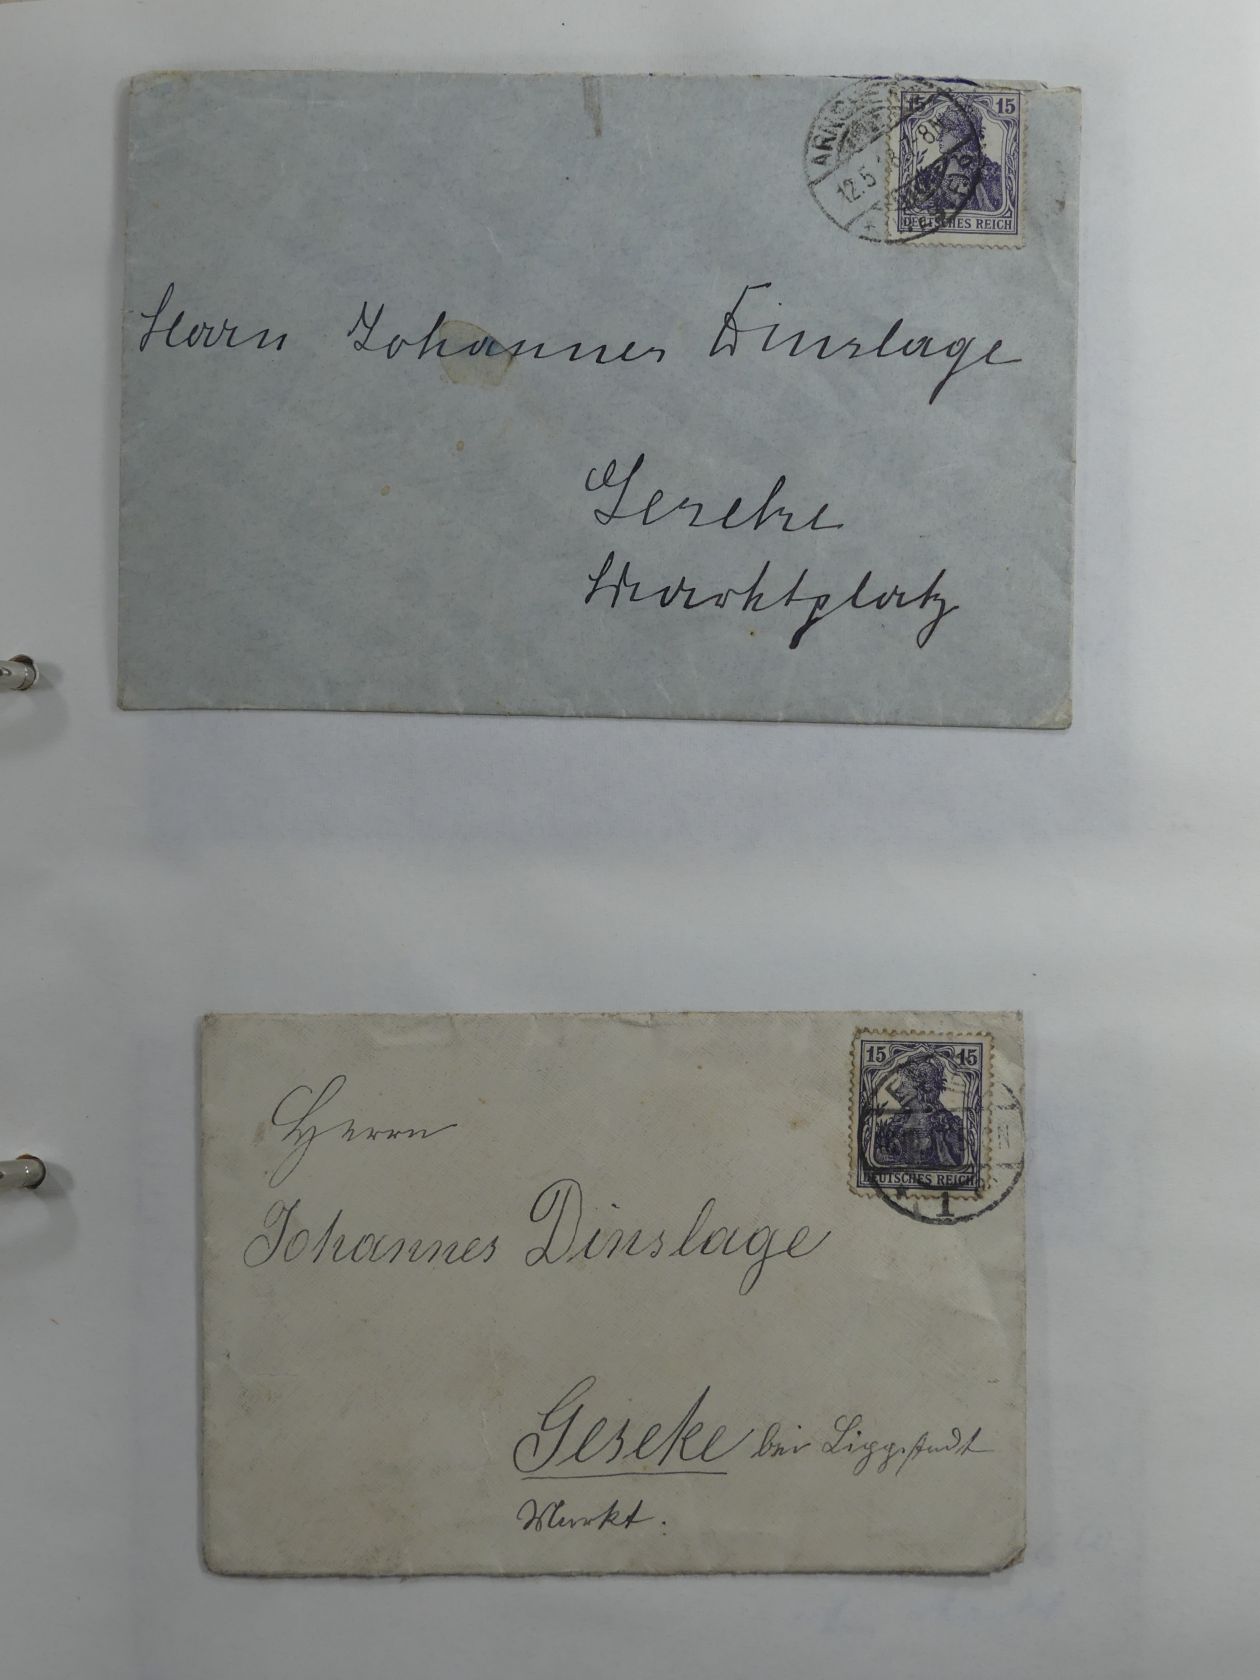 15 15
12.5.
DEUTSCHES REICH
Herrn Johannes Dinslage
Geseke
Marktplatz
15 15
DEUTSCHES REICH
1
Herrn
Johannes Dinslage
Geseke bei Lippstadt
Markt.